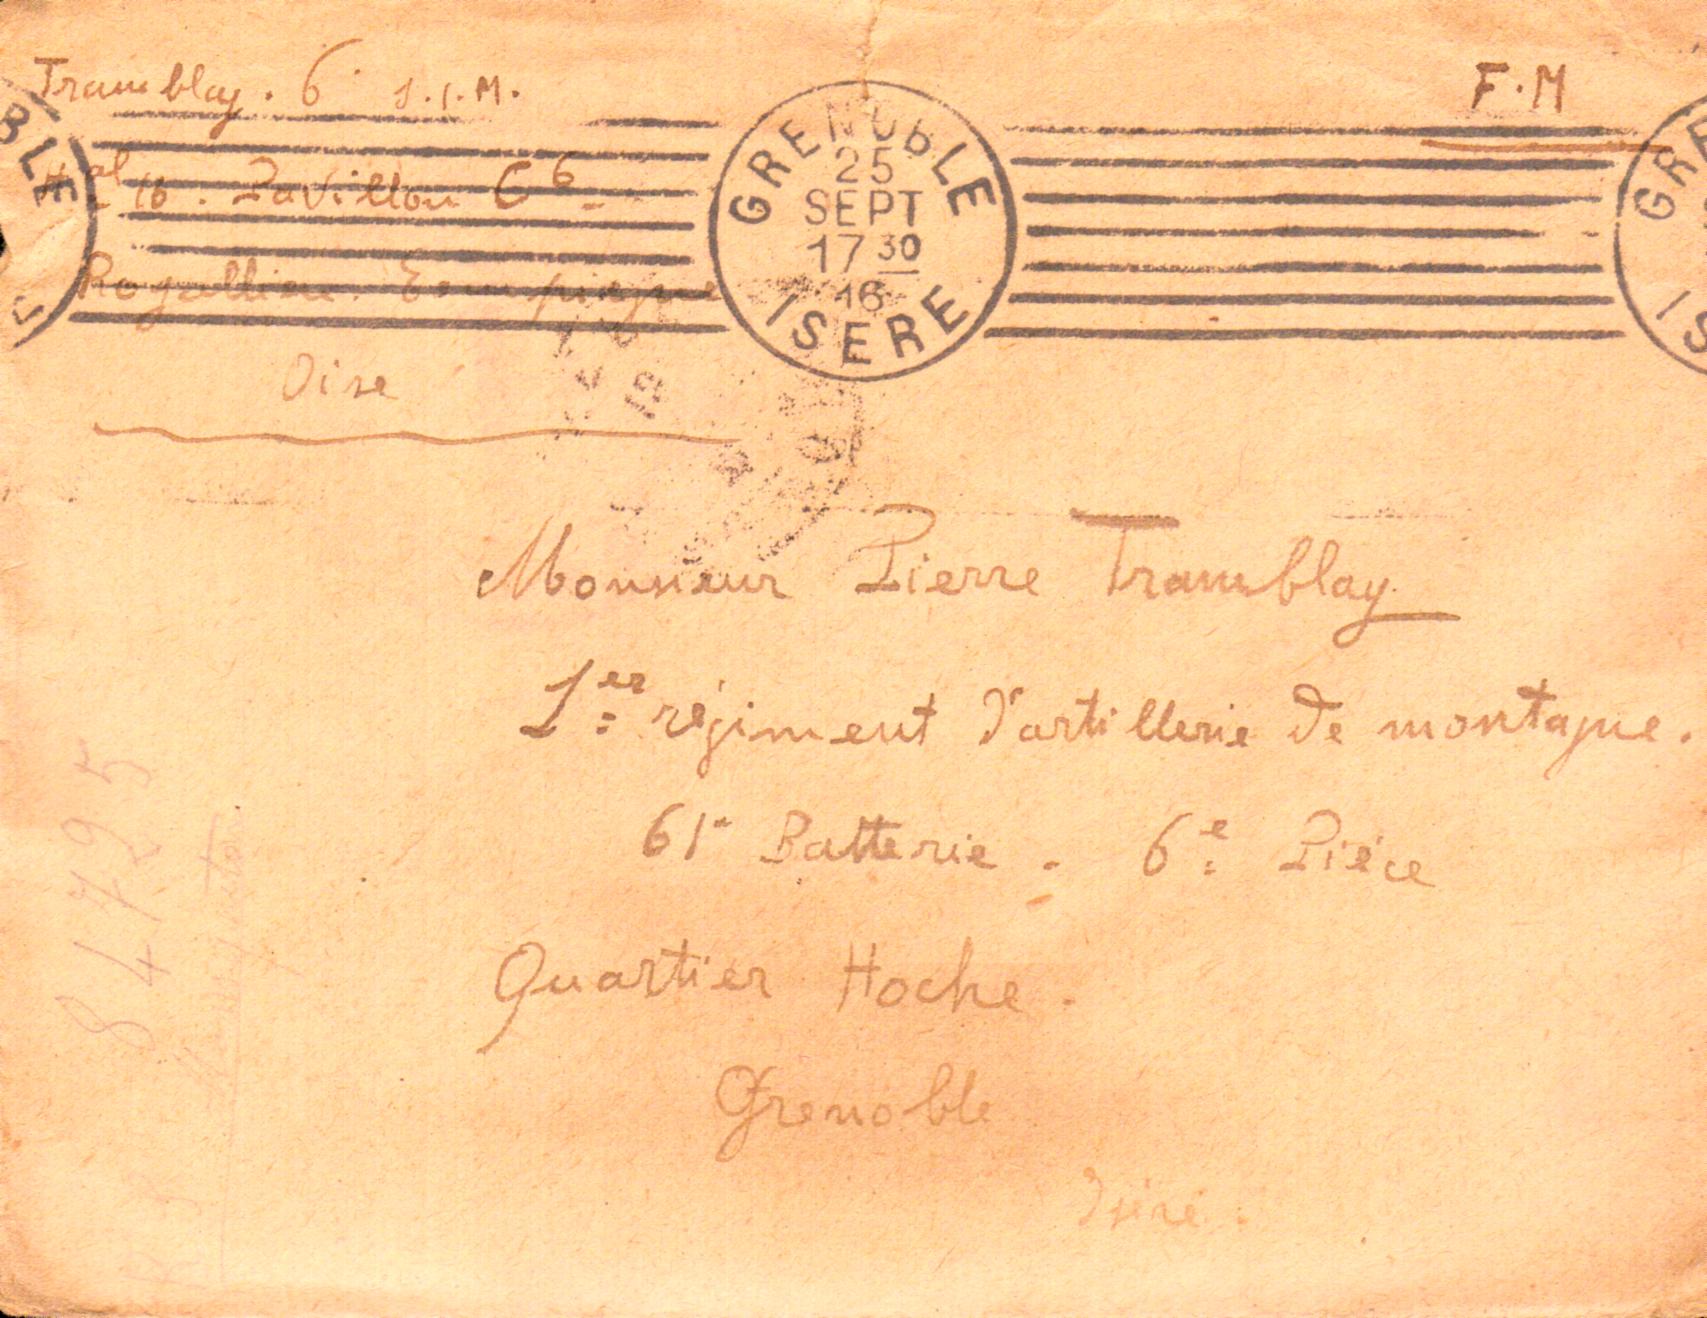 Tramblay. 6 S.I.M.
F.M
Hal 16. Pavillon C6
Royallieu. Compiègne
Oise
GRENOBLE
25
SEPT
17 30
16
ISERE
BLE
GRE
IS
Monsieur Pierre Tramblay
1er régiment d'artillerie de montagne.
61e Batterie. 6e Pièce
Quartier Hoche.
Grenoble
Isère.
84795